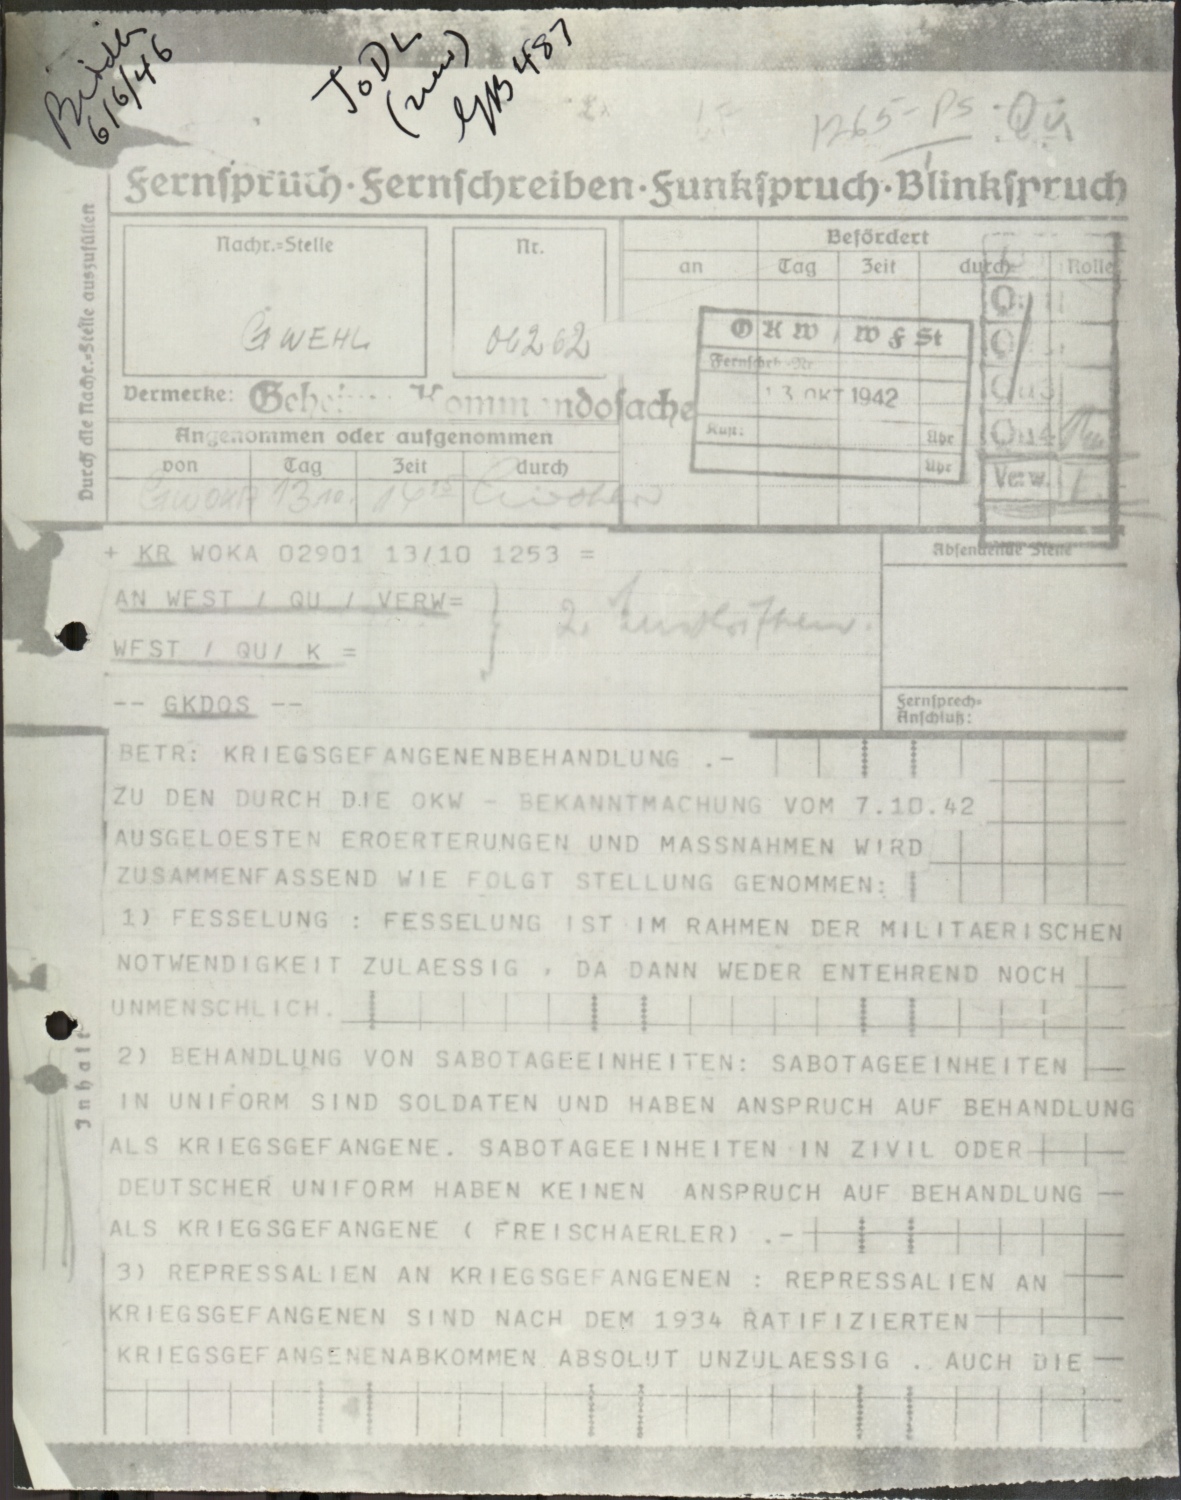 6/6/46
JODL
(new)
GB 487
1265-PS
Qu
Fernspruch·Fernschreiben·Funkspruch·Blinkspruch
Durch die Nachr.=Stelle auszufüllen
Nachr.=Stelle
Nr.
Befördert
an Tag Zeit durch Rolle
GWEHL
04262
OKW / WFSt
Fernschr.-Nr
13. OKT 1942
Uhr
Uhr
Qu
Qu3
Qu4
Verw.
Vermerke: Geheime Kommandosache
Angenommen oder aufgenommen
von Tag Zeit durch
13.10.
+ KR WOKA 02901 13/10 1253 =
Absendende Stelle
AN WEST / QU / VERW=
WFST / QU/ K =
-- GKDOS --
Fernsprech=
Anschluß:
Inhalt
BETR: KRIEGSGEFANGENENBEHANDLUNG .-
ZU DEN DURCH DIE OKW - BEKANNTMACHUNG VOM 7.10.42
AUSGELOESTEN EROERTERUNGEN UND MASSNAHMEN WIRD
ZUSAMMENFASSEND WIE FOLGT STELLUNG GENOMMEN:
1) FESSELUNG : FESSELUNG IST IM RAHMEN DER MILITAERISCHEN
NOTWENDIGKEIT ZULAESSIG , DA DANN WEDER ENTEHREND NOCH
UNMENSCHLICH.
2) BEHANDLUNG VON SABOTAGEEINHEITEN: SABOTAGEEINHEITEN
IN UNIFORM SIND SOLDATEN UND HABEN ANSPRUCH AUF BEHANDLUNG
ALS KRIEGSGEFANGENE. SABOTAGEEINHEITEN IN ZIVIL ODER
DEUTSCHER UNIFORM HABEN KEINEN ANSPRUCH AUF BEHANDLUNG
ALS KRIEGSGEFANGENE ( FREISCHAERLER) .-
3) REPRESSALIEN AN KRIEGSGEFANGENEN : REPRESSALIEN AN
KRIEGSGEFANGENEN SIND NACH DEM 1934 RATIFIZIERTEN
KRIEGSGEFANGENENABKOMMEN ABSOLUT UNZULAESSIG . AUCH DIE